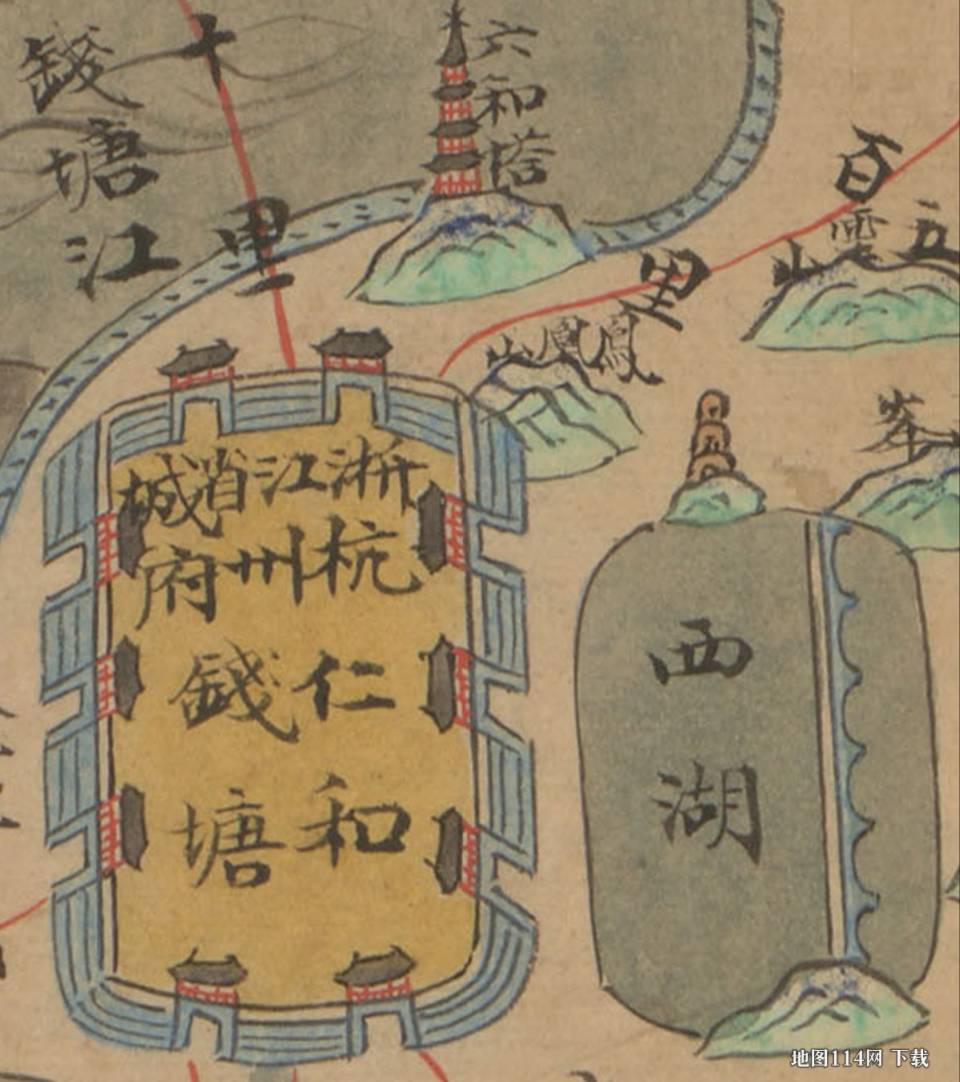 錢塘江
十里
六和塔
百
里
五雲山
鳳凰山
峯
浙江省城
杭州府
仁和
錢塘
西湖
地图114网 下载